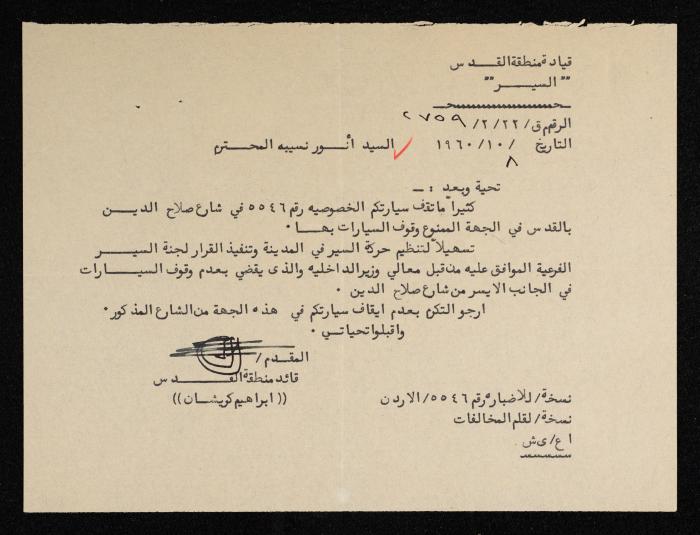 قيادة منطقة القـــدس
"" السيـــــر ""
الرقم ق/٢/٢٢/ ٢٧٥٩
التاريخ /١٩٦٠/١٠
٨
السيد أنــور نسيبه المحــترم
تحية وبعد : ــ
كثيراً ما تقف سيارتكم الخصوصيه رقم ٥٥٤٦ في شارع صلاح الديــن
بالقدس في الجهة الممنوع وقوف السيارات بهــا ٠
تسهيلاً لتنظيم حركة السير في المدينة وتنفيذ القرار لجنة السيـــر
الفرعية الموافق عليه من قبل معالي وزير الداخليه والذى يقضي بعدم وقوف السيــارات
في الجانب الايسر من شارع صلاح الدين ٠
ارجو التكرم بعدم ايقاف سيارتكم في هذه الجهة من الشارع المذكور ٠
واقبلوا تحياتــي ٠
المقدم /
قائد منطقة القــــدس
(( ابراهيم كريشــان ))
نسخة/ للاضبارة رقم ٥٥٤٦/الاردن
نسخة/ لقلم المخالفات
ا ع/ ى ش